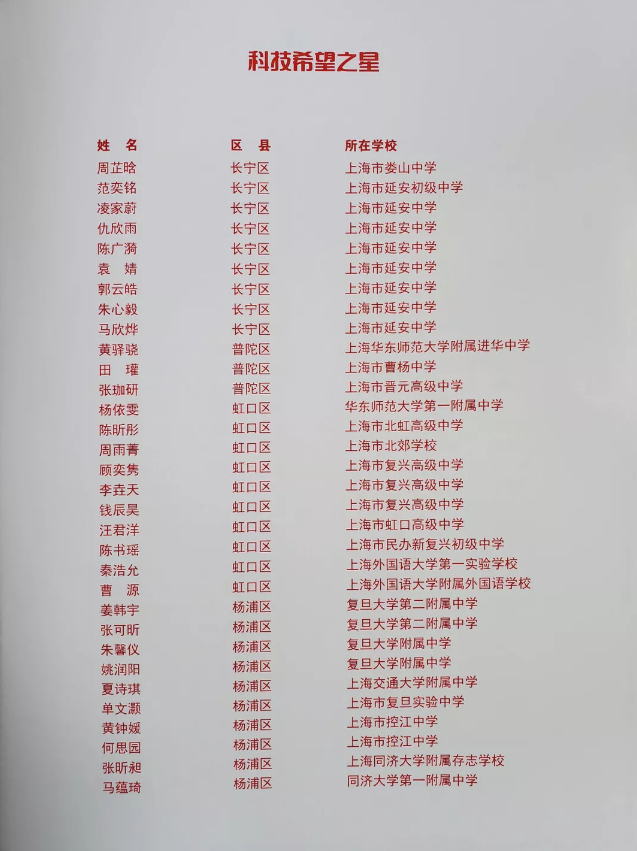 科技希望之星
姓 名 区 县 所在学校
周芷晗 长宁区 上海市娄山中学
范奕铭 长宁区 上海市延安初级中学
凌家蔚 长宁区 上海市延安中学
仇欣雨 长宁区 上海市延安中学
陈广漪 长宁区 上海市延安中学
袁 婧 长宁区 上海市延安中学
郭云皓 长宁区 上海市延安中学
朱心毅 长宁区 上海市延安中学
马欣烨 长宁区 上海市延安中学
黄驿骁 普陀区 上海华东师范大学附属进华中学
田 瓘 普陀区 上海市曹杨中学
张珈研 普陀区 上海市晋元高级中学
杨依雯 虹口区 华东师范大学第一附属中学
陈昕彤 虹口区 上海市北虹高级中学
周雨菁 虹口区 上海市北郊学校
顾奕隽 虹口区 上海市复兴高级中学
李垚天 虹口区 上海市复兴高级中学
钱辰昊 虹口区 上海市复兴高级中学
汪君洋 虹口区 上海市虹口高级中学
陈书瑶 虹口区 上海市民办新复兴初级中学
秦浩允 虹口区 上海外国语大学第一实验学校
曹 源 虹口区 上海外国语大学附属外国语学校
姜韩宇 杨浦区 复旦大学第二附属中学
张可昕 杨浦区 复旦大学第二附属中学
朱馨仪 杨浦区 复旦大学附属中学
姚润阳 杨浦区 复旦大学附属中学
夏诗琪 杨浦区 上海交通大学附属中学
单文灏 杨浦区 上海市复旦实验中学
黄钟媛 杨浦区 上海市控江中学
何思园 杨浦区 上海市控江中学
张昕昶 杨浦区 上海同济大学附属存志学校
马蕴琦 杨浦区 同济大学第一附属中学